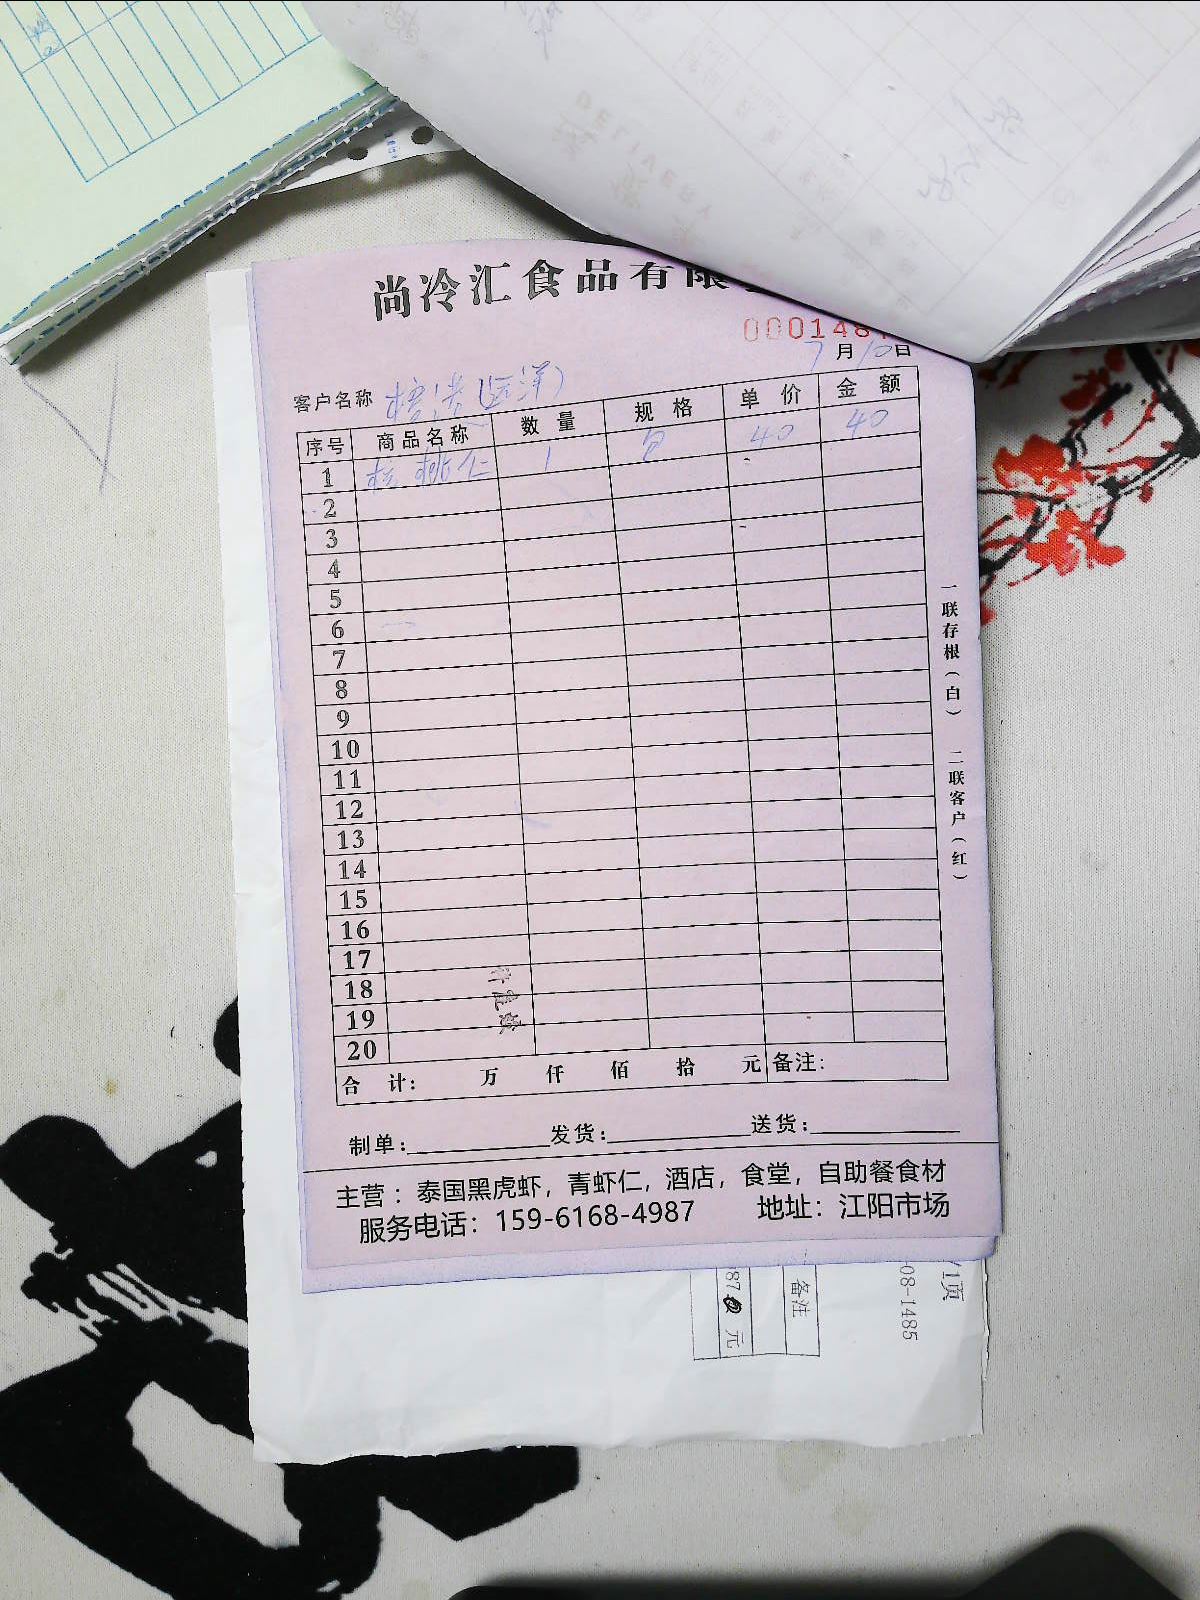 DELIVERY
尚冷汇食品有限
000148
7月10日
客户名称
序号 商品名称 数量 规格 单价 金额
1 核桃仁 1 包 40 40
2
3
4
5
6
7
8
9
10
11
12
13
14
15
16
17
18
19
20
合计: 万 仟 佰 拾 元 备注:
制单: 发货: 送货:
主营：泰国黑虎虾，青虾仁，酒店，食堂，自助餐食材
服务电话：159-6168-4987 地址：江阳市场
一联存根（白） 二联客户（红）
/1页
-08-1485
备注
元